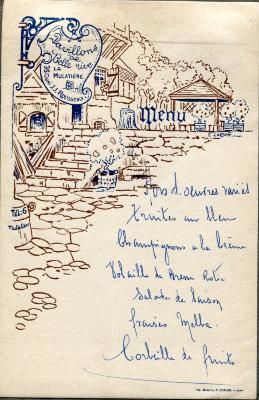 Pavillons
de
Belle rive
LA
MULATIÈRE
35 Q. J.J. ROUSSEAU
Menu
Hors d'oeuvres variés
Truites au bleu
Champignons à la Crème
Volaille de Bresse Rotie
Salade de Saison
fraises Melba
Corbeille de fruits
TÉL: 6
Mulatière